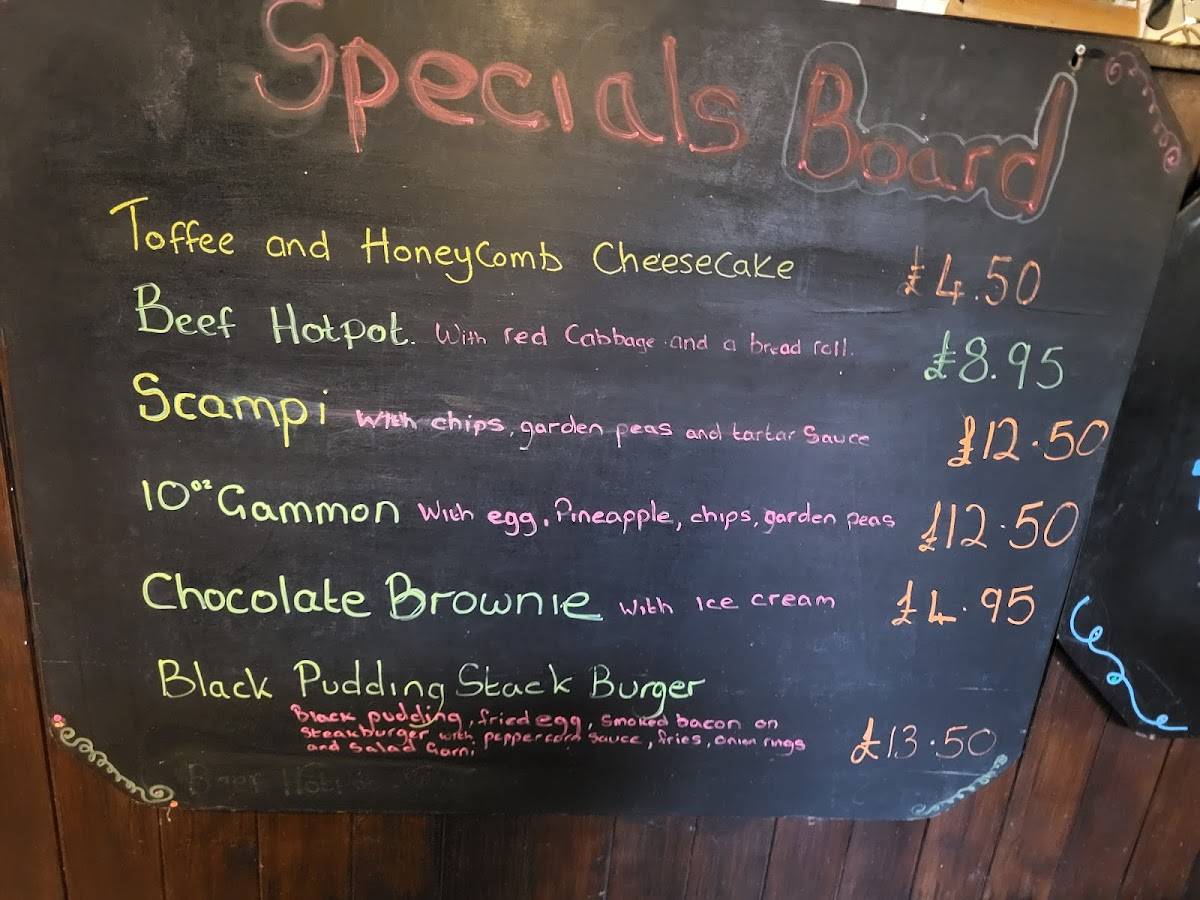 Specials Board
Toffee and HoneyComb CheeseCake £4.50
Beef Hotpot. With red Cabbage and a bread roll. £8.95
Scampi With chips, garden peas and tartar Sauce £12.50
10oz Gammon With egg, Pineapple, chips, garden peas £12.50
Chocolate Brownie With Ice cream £4.95
Black Pudding Stack Burger
Black pudding, fried egg, Smoked bacon on
Steakburger with peppercorn Sauce, fries, onion rings £13.50
and Salad Garni